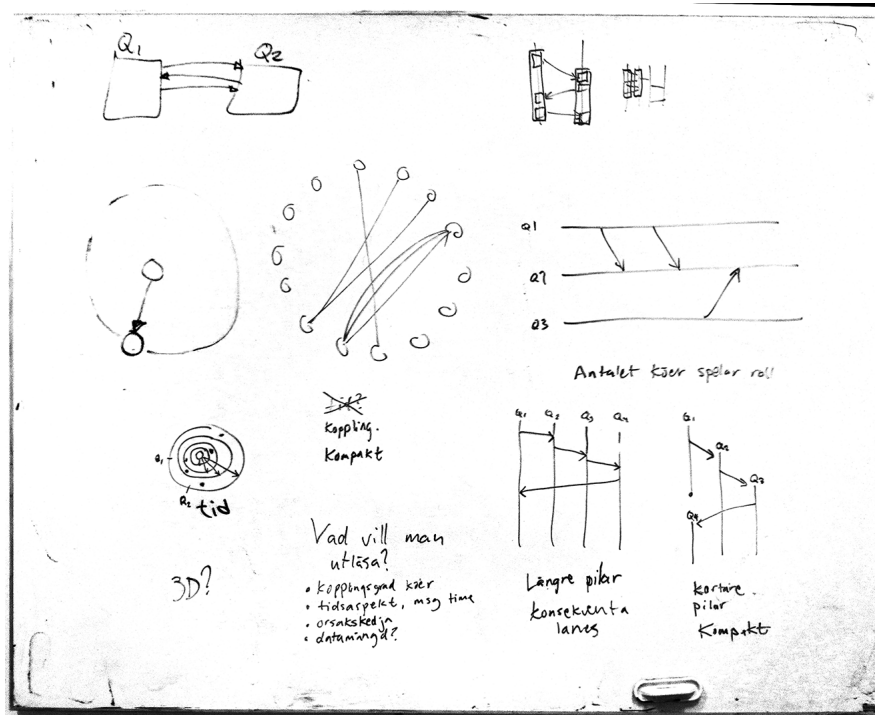 Q1
Q2
Q1
Q2
Q3
Antalet köer spelar roll
Koppling.
Kompakt
Q1
Q2
tid
3D?
Vad vill man
utläsa?
• kopplingsgrad köer
• tidsaspekt, msg time
• orsakskedja
• datamängd?
Q1
Q2
Q3
Q4
Längre pilar
konsekventa
lanes
Q1
Q2
Q3
Q4
kortare
pilar
Kompakt